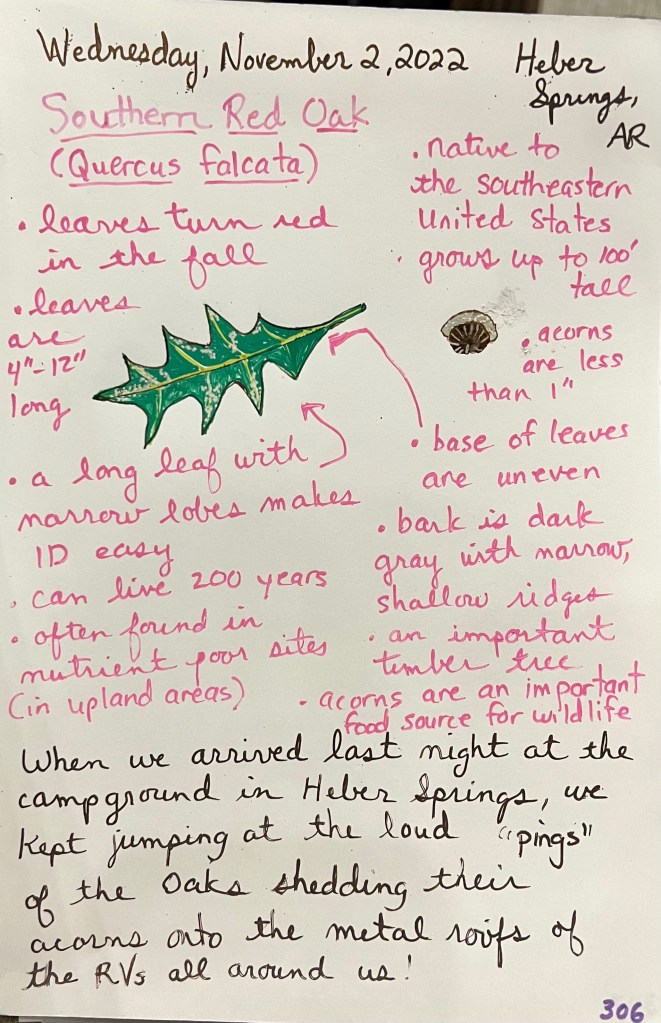 Wednesday, November 2, 2022
Heber
Springs,
AR
Southern Red Oak
(Quercus falcata)
• leaves turn red
in the fall
• leaves
are
4"-12"
long
• a long leaf with
narrow lobes makes
ID easy
• can live 200 years
• often found in
nutrient poor sites
(in upland areas)
• native to
the southeastern
United States
• grows up to 100'
tall
• acorns
are less
than 1"
• base of leaves
are uneven
• bark is dark
gray with narrow,
shallow ridges
• an important
timber tree
• acorns are an important
food source for wildlife
When we arrived last night at the
campground in Heber Springs, we
kept jumping at the loud "pings"
of the Oaks shedding their
acorns onto the metal roofs of
the RVs all around us!
306